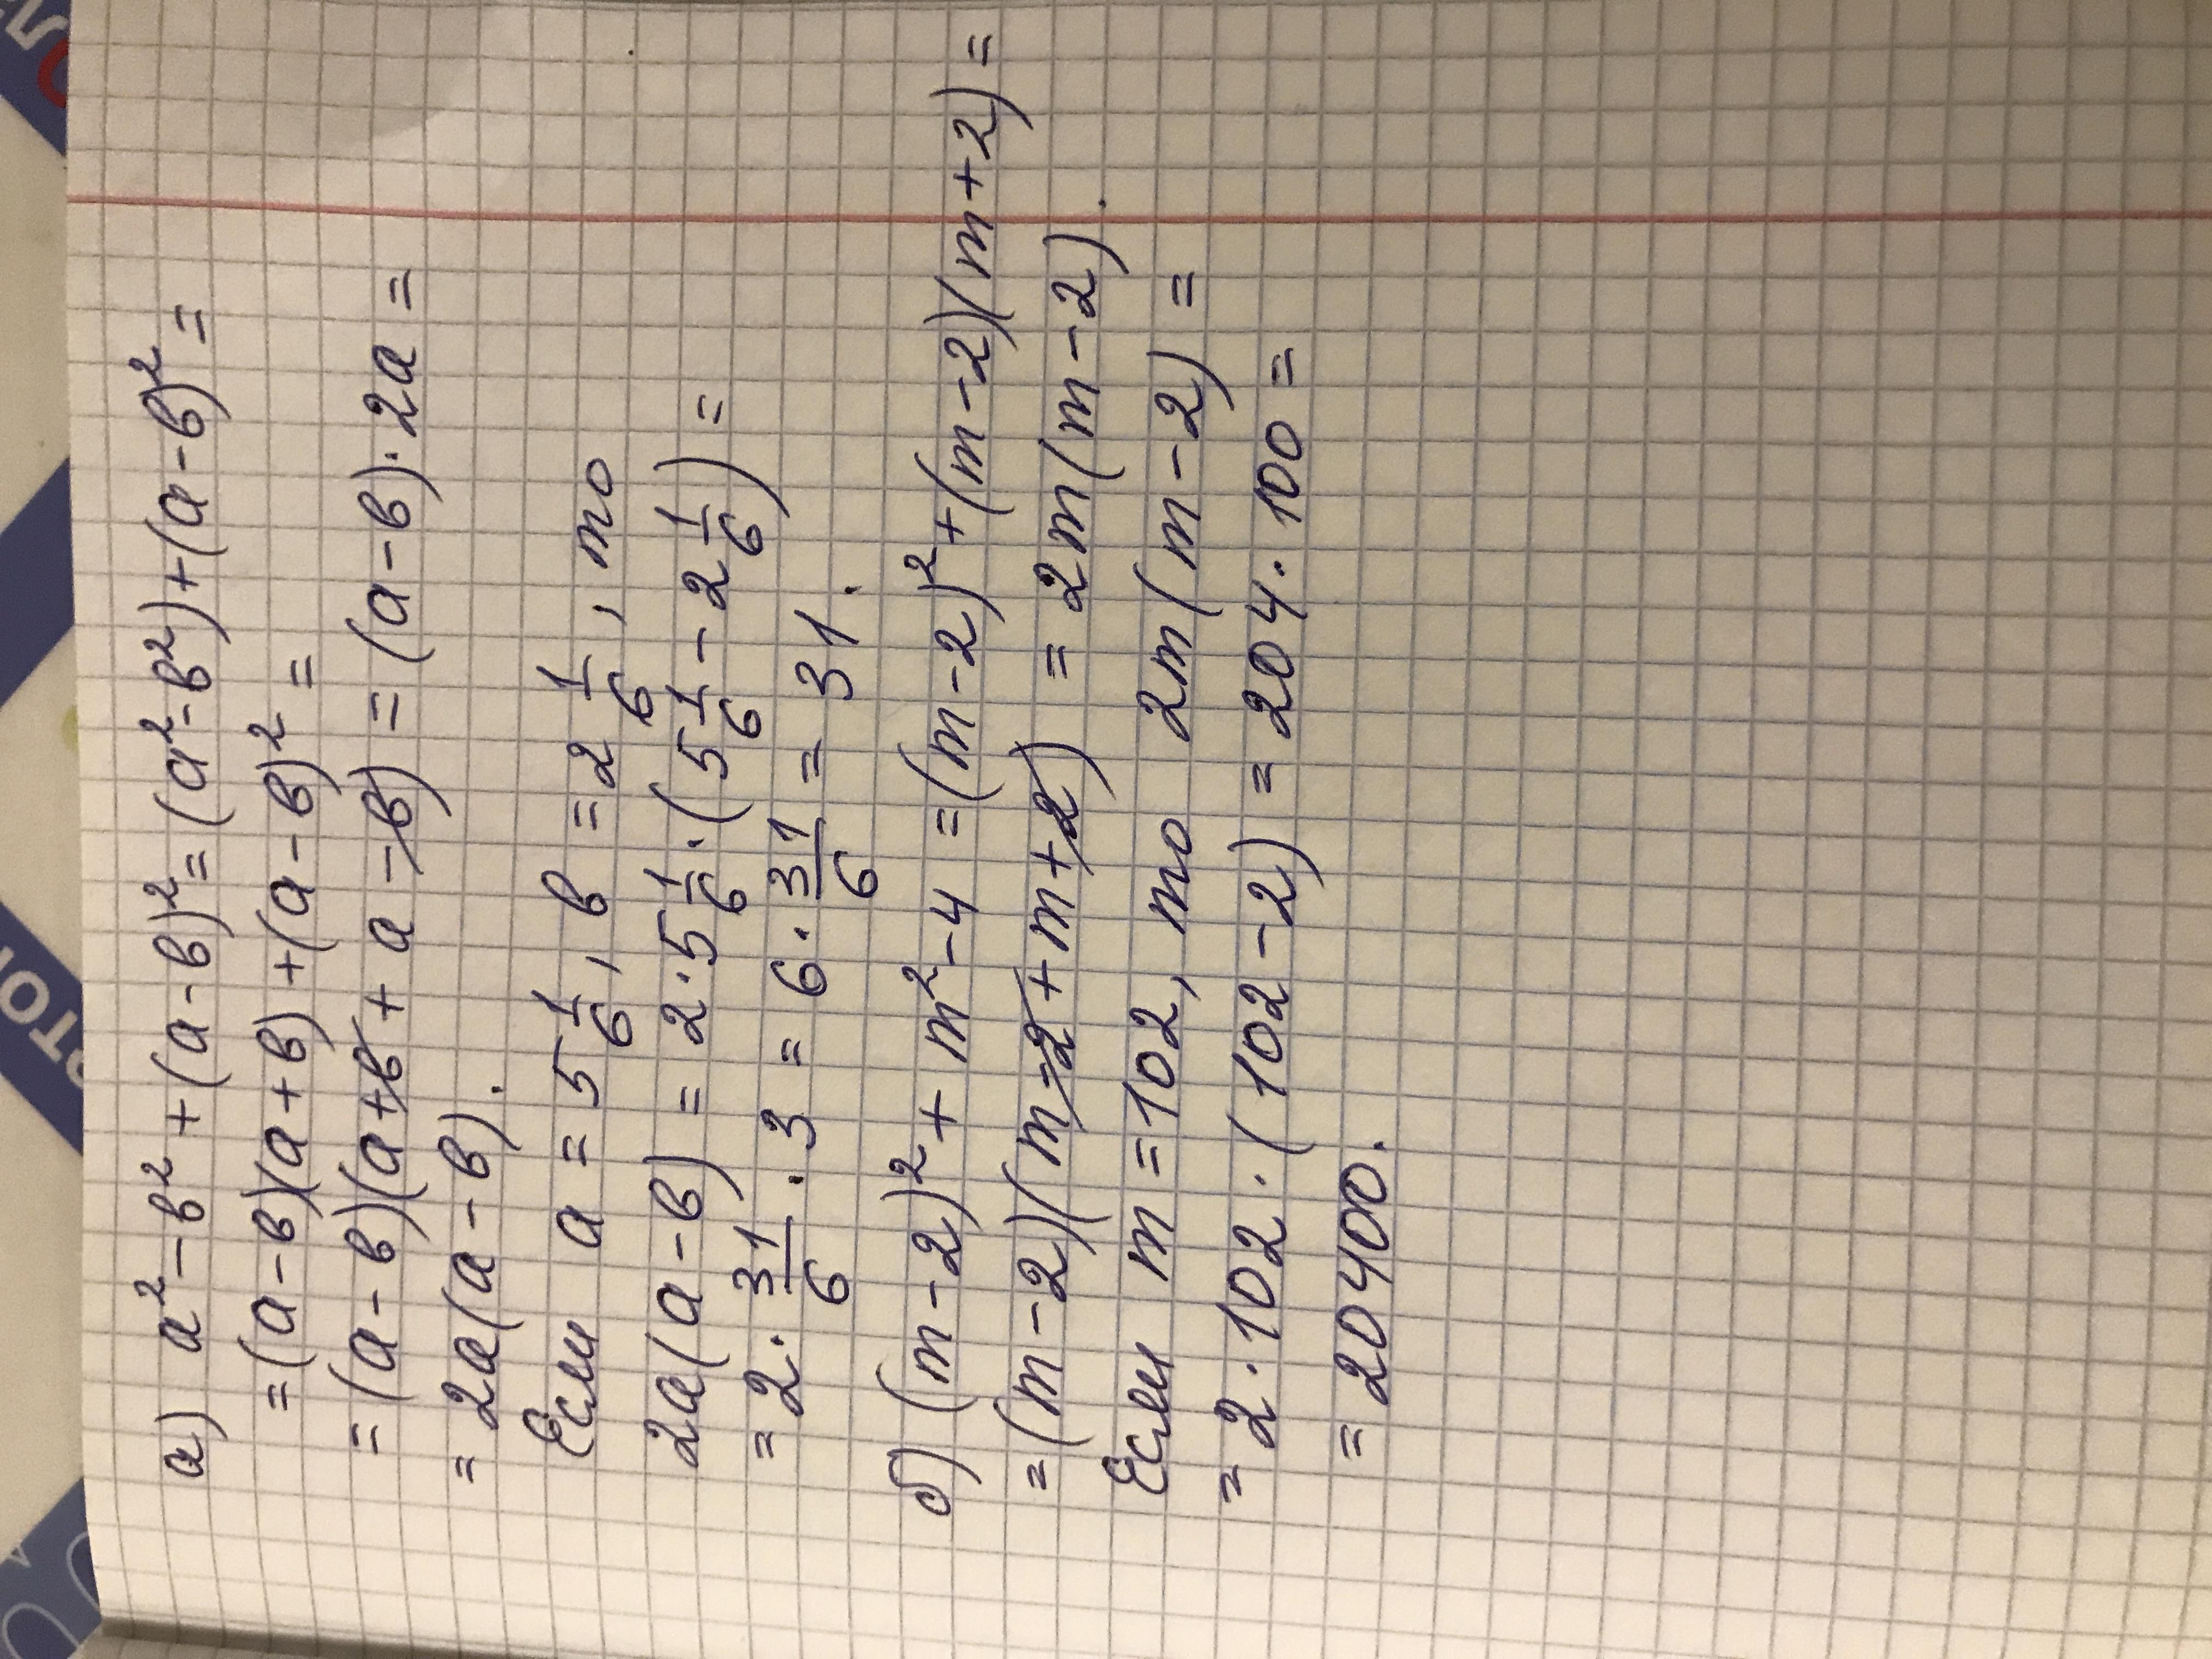 а) a² - в² + (a - в)² = (a² - в²) + (a - в)² =
= (a - в)(a + в) + (a - в)² =
= (a - в)(a + в + a - в) = (a - в) · 2a =
= 2a(a - в).
Если a = 5 1/6, в = 2 1/6, то
2a(a - в) = 2 · 5 1/6 · (5 1/6 - 2 1/6) =
= 2 · 31/6 · 3 = 6 · 31/6 = 31.
б) (m - 2)² + m² - 4 = (m - 2)² + (m - 2)(m + 2) =
= (m - 2)(m - 2 + m + 2) = 2m(m - 2).
Если m = 102, то 2m(m - 2) =
= 2 · 102 · (102 - 2) = 204 · 100 =
= 20400.